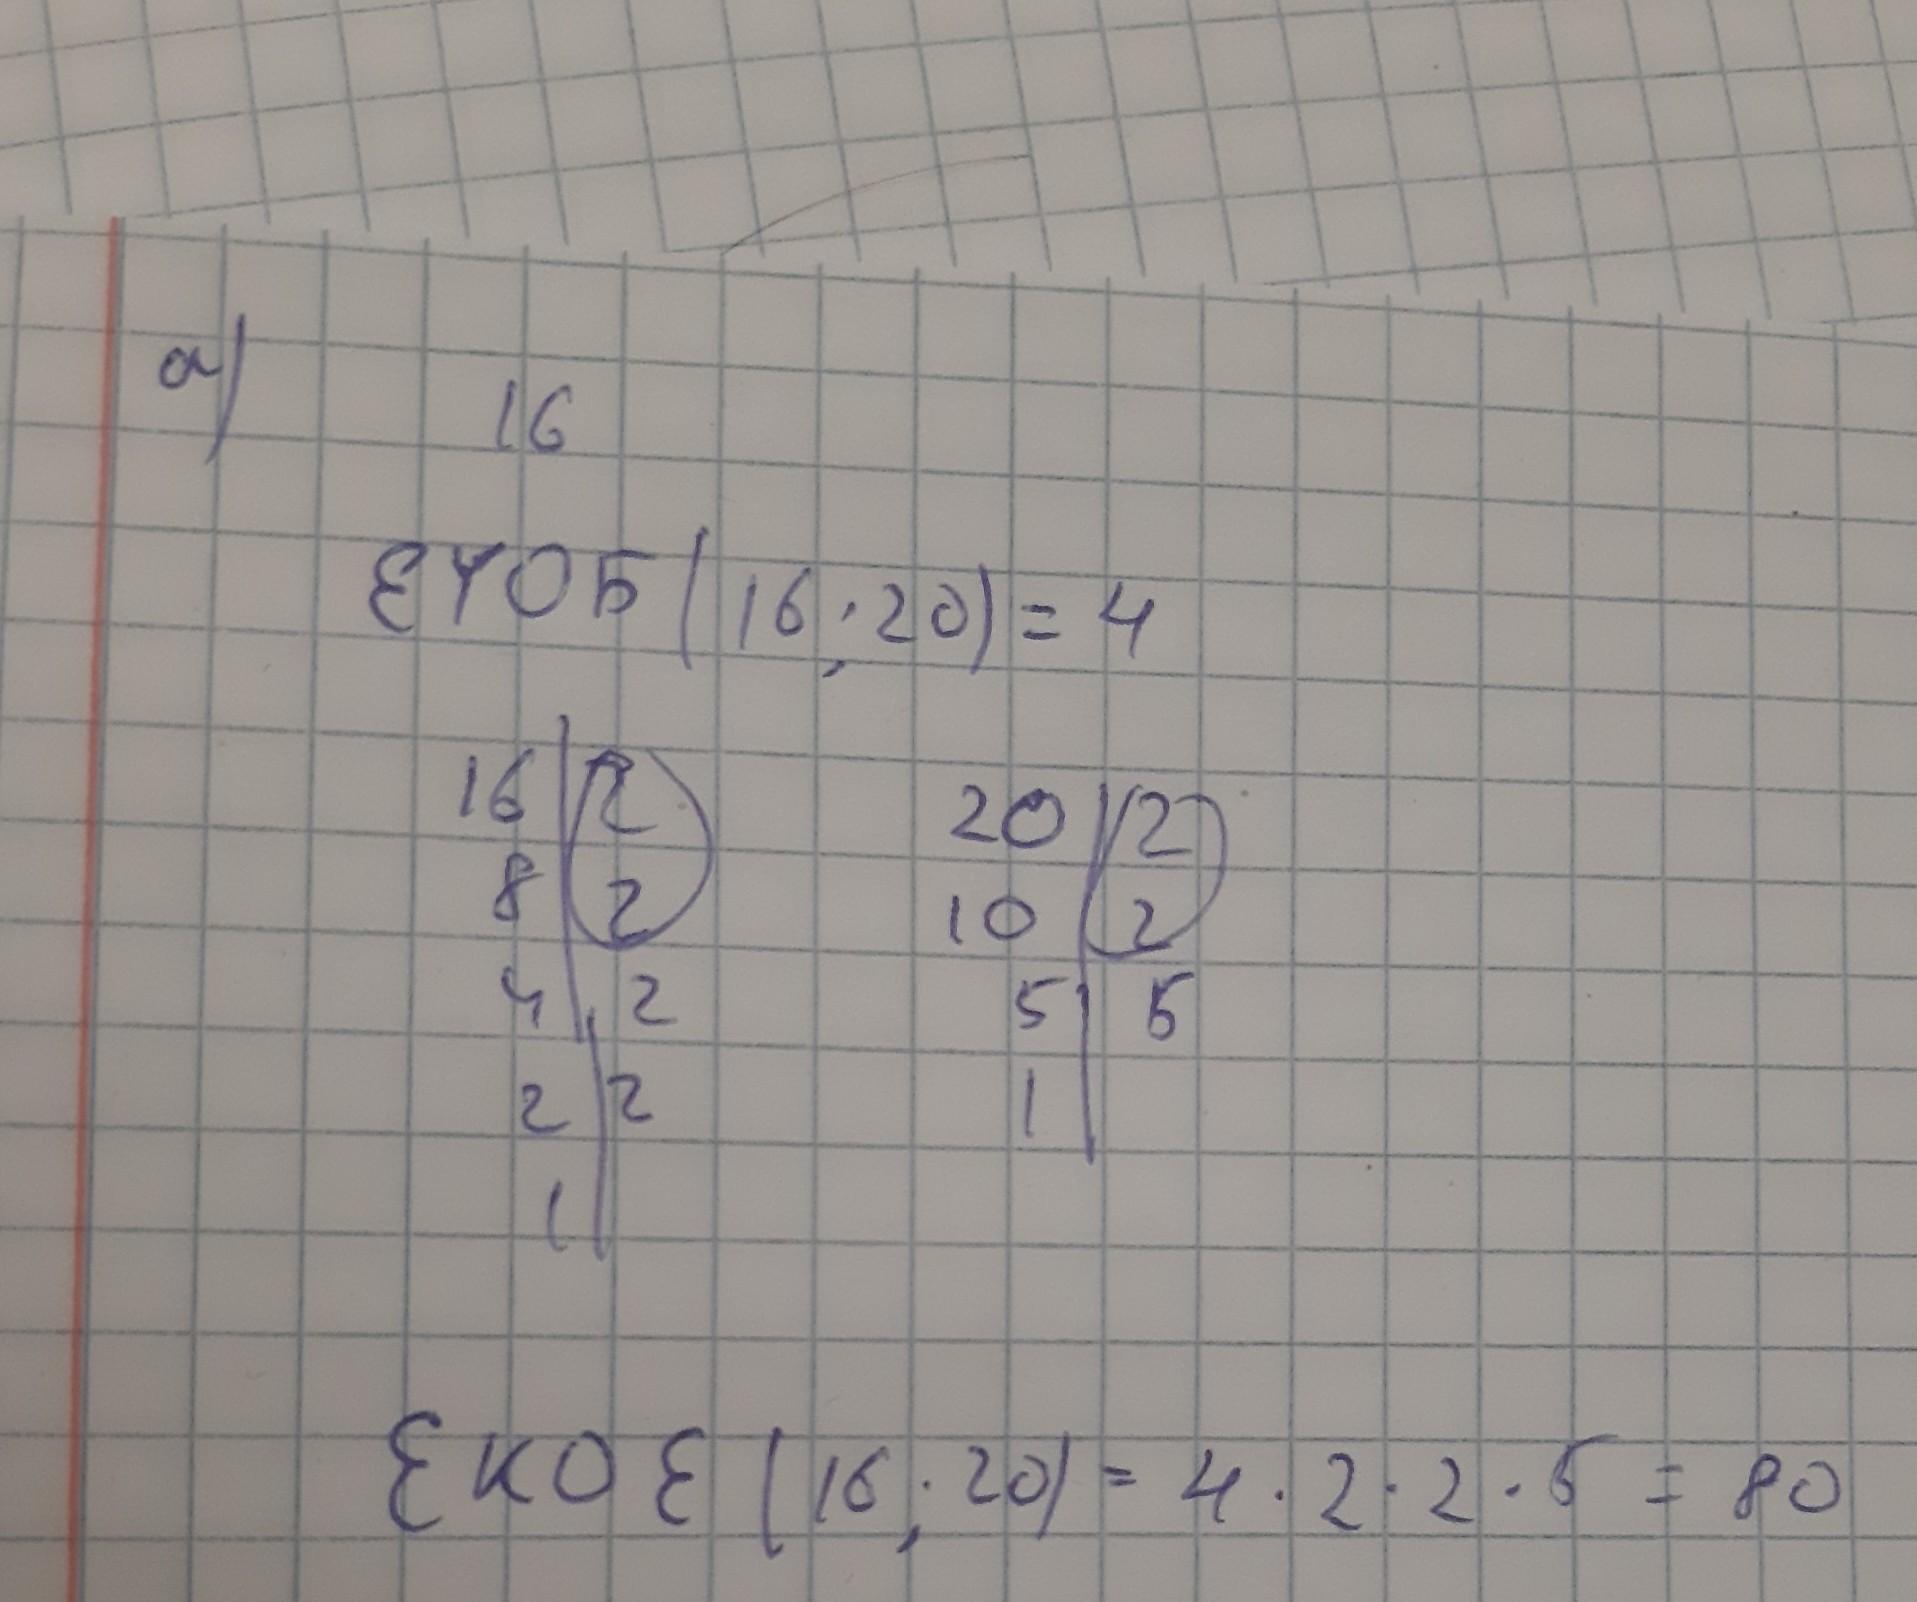 а)
16
ЕҮОБ (16; 20) = 4
16 | 2 20 | 2
8 | 2 10 | 2
4 | 2 5 | 5
2 | 2 1 |
1 |
ЕКОЕ (16; 20) = 4 · 2 · 2 · 5 = 80